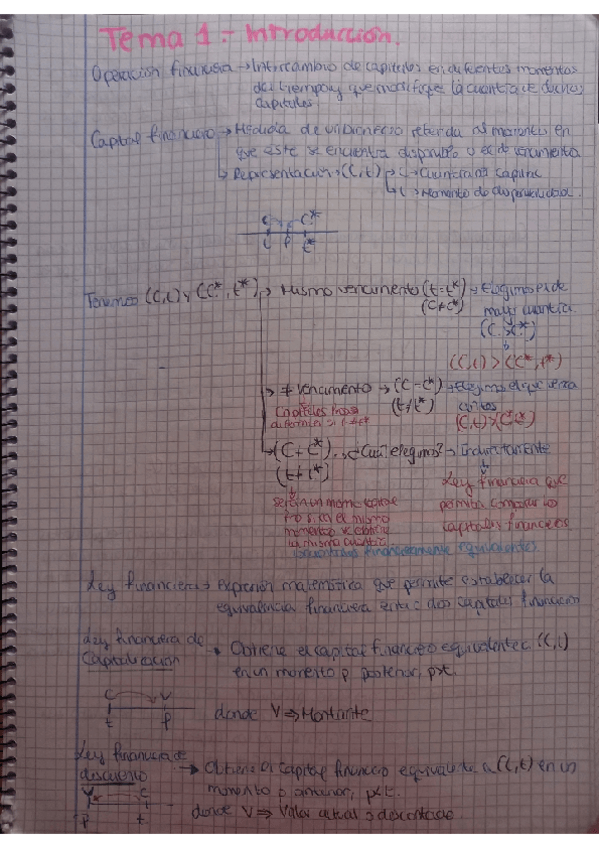 Tema 1 - Introducción.
Operación financiera → Intercambio de capitales en diferentes momentos
del tiempo y que modifique la cuantía de dichos
capitales.
Capital financiero → Medida de un bien referida al momento en
que este se encuentra disponible o es de vencimiento
↳ Representación → (C, t) → C → Cuantía del capital
↳ t → Momento de disponibilidad.
C C*
t p t*
Tenemos (C, t) y (C*, t*) → Mismo vencimiento (t = t*) → Elegimos el de
(C ≠ C*) mayor cuantía.
(C, t) > (C*, t*)
→ ≠ vencimiento → (C = C*) → Elegimos el que venza
(t ≠ t*) antes
Capitales
(C, t) > (C*, t*)
→ (C ≠ C*) → ¿Cuál elegimos? → Indirectamente
(t ≠ t*)
Ley financiera que
permita comparar los
capitales financieros
será en un momento de
si en el mismo
momento se obtiene
la misma cuantía
financieramente equivalentes
Ley financiera → expresión matemática que permite establecer la
equivalencia financiera entre dos capitales financieros
Ley financiera de
Capitalización → Obtiene el capital financiero equivalente (C, t)
en un momento p posterior, p>t.
C V
t p
donde V ⇒ Montante
Ley financiera de
descuento → Obtiene el capital financiero equivalente a (C, t) en un
momento p anterior, p<t.
V C
p t
donde V ⇒ Valor actual o descontado